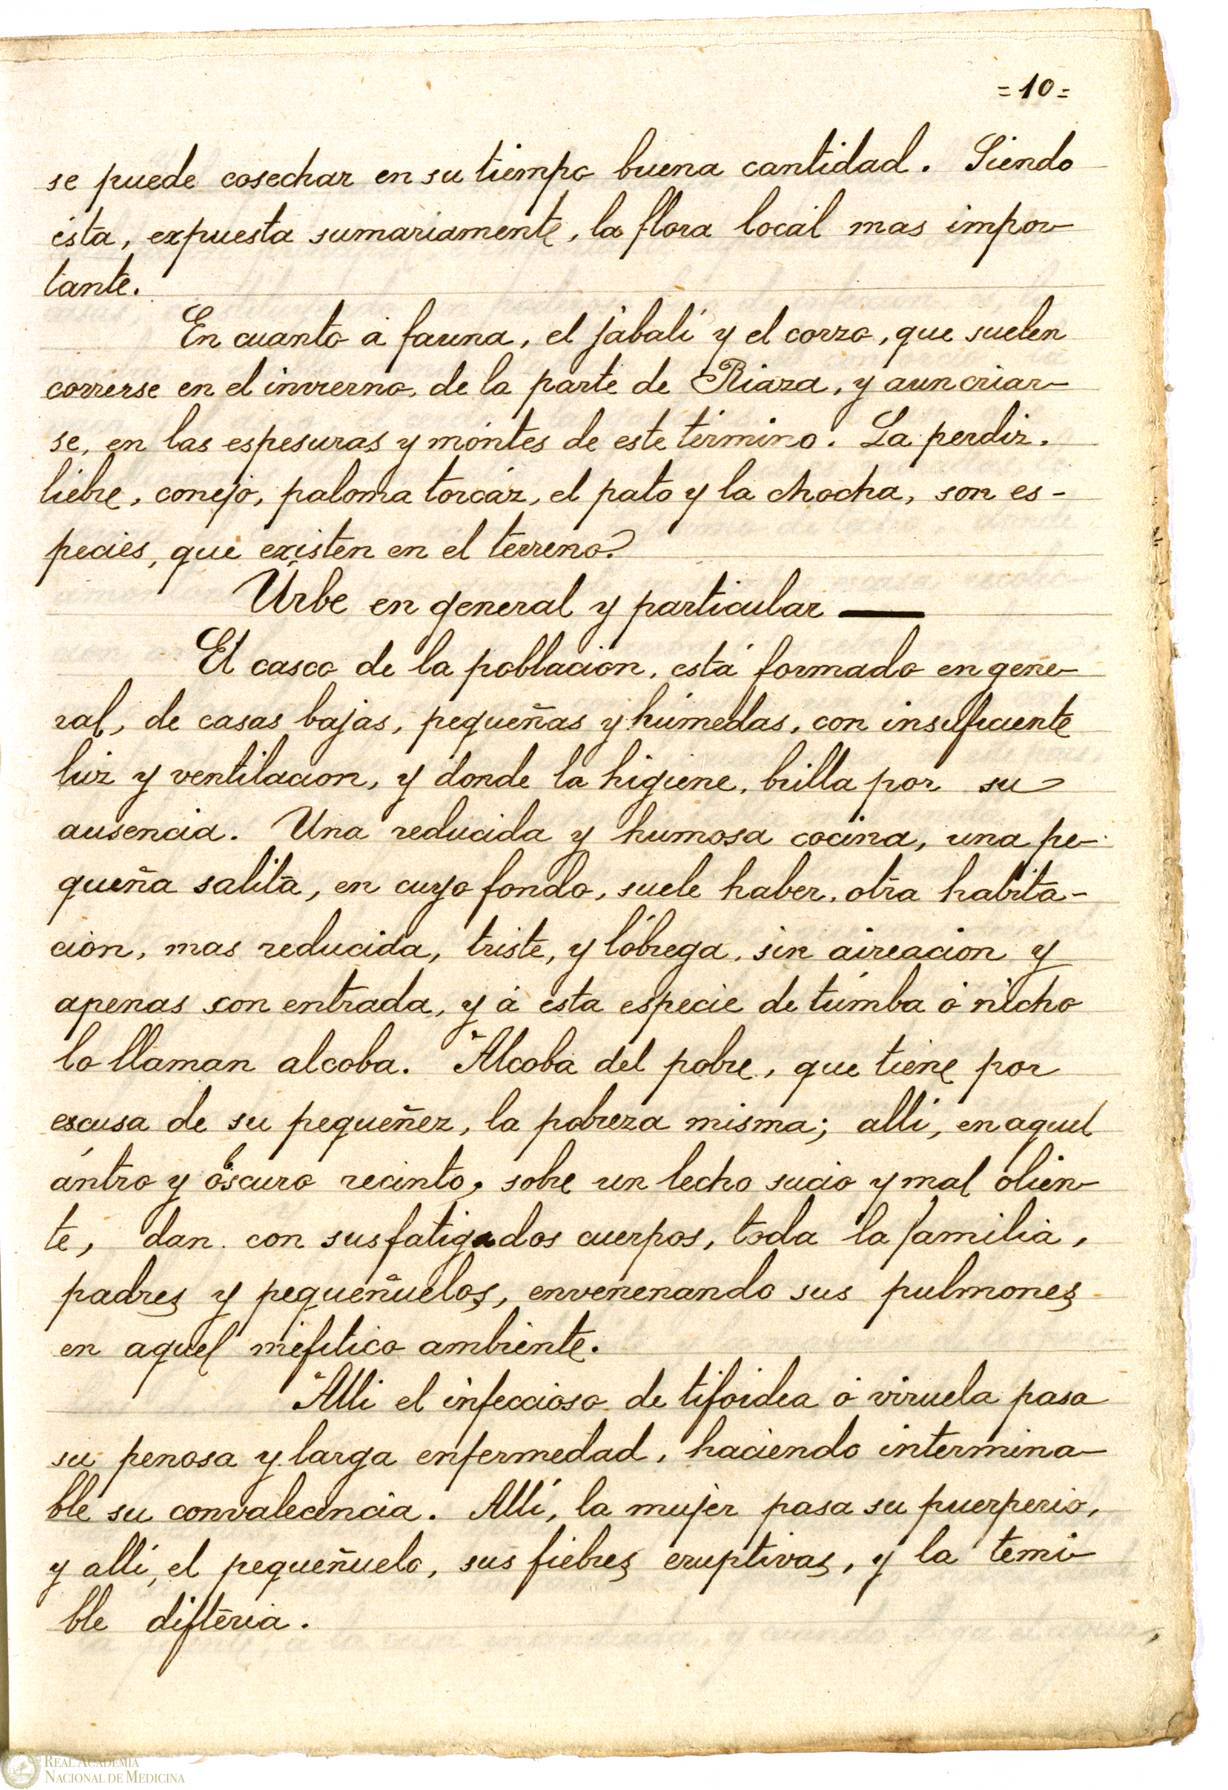 =10=
se puede cosechar en su tiempo buena cantidad. Siendo
ésta, expuesta sumariamente, la flora local mas impor-
tante.
En cuanto á fauna, el jabalí y el corzo, que suelen
correrse en el invierno, de la parte de Riaza, y aun criar-
se, en las espesuras y móntes de este término. La perdiz.
liebre, conejo, paloma torcáz, el pato y la chocha, son es-
pecies, que existen en el terreno.
Urbe en general y particular —
El casco de la poblacion, está formado en gene-
ral, de casas bajas, pequeñas y húmedas, con insuficiente
luz y ventilacion, y donde la higiene, brilla por su
ausencia. Una reducida y humosa cocina, una pe-
queña salita, en cuyo fondo, suele haber, otra habita-
cion, mas reducida, triste, y lóbrega, sin aireacion y
apenas con entrada, y á esta especie de túmba ó nicho
lo llaman alcoba. Alcoba del pobre, que tiene por
escusa de su pequeñez, la pobreza misma; alli, en aquel
ántro y óscuro recinto, sobre un lecho sucio y mal olien-
te, dan con sus fatigados cuerpos, toda la familia,
padres y pequeñuelos, envenenando sus pulmones
en aquel mefitico ambiente.
Alli el infeccioso de tifoidea ó viruela pasa
su penosa y larga enfermedad, haciendo intermina-
ble su convalecencia. Allí, la mujer pasa su puerperio,
y allí, el pequeñuelo, sus fiebres eruptivas, y la temi-
ble difteria.
REAL ACADEMIA
NACIONAL DE MEDICINA